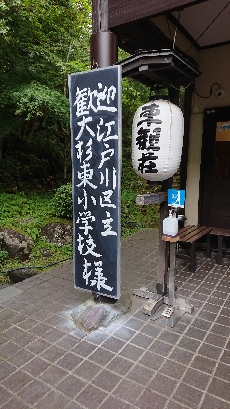 歓迎
江戸川区立
大杉東小学校様
東観荘